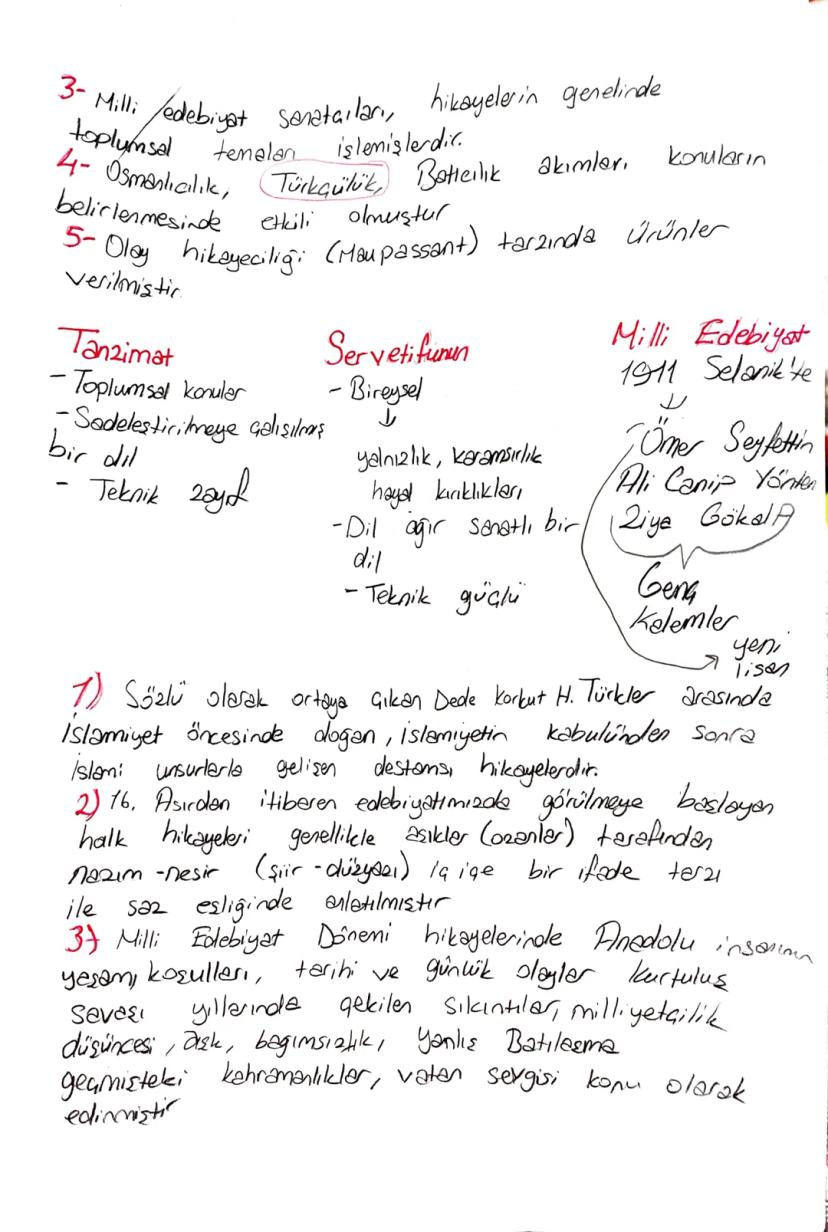 3- Milli edebiyat sanatçıları, hikayelerin genelinde
toplumsal temaları işlemişlerdir.
4- Osmanlıcılık, Türkçülük, Batıcılık akımları konuların
belirlenmesinde etkili olmuştur
5- Olay hikayeciliği (Maupassant) tarzında ürünler
verilmiştir.
Tanzimat
- Toplumsal konular
- Sadeleştirilmeye çalışılmış
bir dil
- Teknik zayıf
Servetifunun
- Bireysel
↓
yalnızlık, karamsarlık
hayal kırıklıkları
- Dil ağır sanatlı bir
dil
- Teknik güçlü
Milli Edebiyat
1911 Selanik'te
↓
Ömer Seyfettin
Ali Canip Yöntem
Ziya Gökalp
Genç
Kalemler
yeni
lisan
1) Sözlü olarak ortaya çıkan Dede Korkut H. Türkler arasında
İslamiyet öncesinde doğan, islamiyetin kabulünden sonra
islami unsurlarla gelişen destansı hikayelerdir.
2) 16. Asırdan itibaren edebiyatımızda görülmeye başlayan
halk hikayeleri genellikle aşıklar (ozanlar) tarafından
nazım - nesir (şiir - düzyazı) iç içe bir ifade tarzı
ile saz eşliğinde anlatılmıştır
3) Milli Edebiyat Dönemi hikayelerinde Anadolu insanının
yaşamı, koşulları, tarihi ve günlük olaylar kurtuluş
savaşı yıllarında çekilen sıkıntılar, milliyetçilik
düşüncesi, aşk, bağımsızlık, yanlış Batılaşma
geçmişteki kahramanlıklar, vatan sevgisi konu olarak
edinmiştir